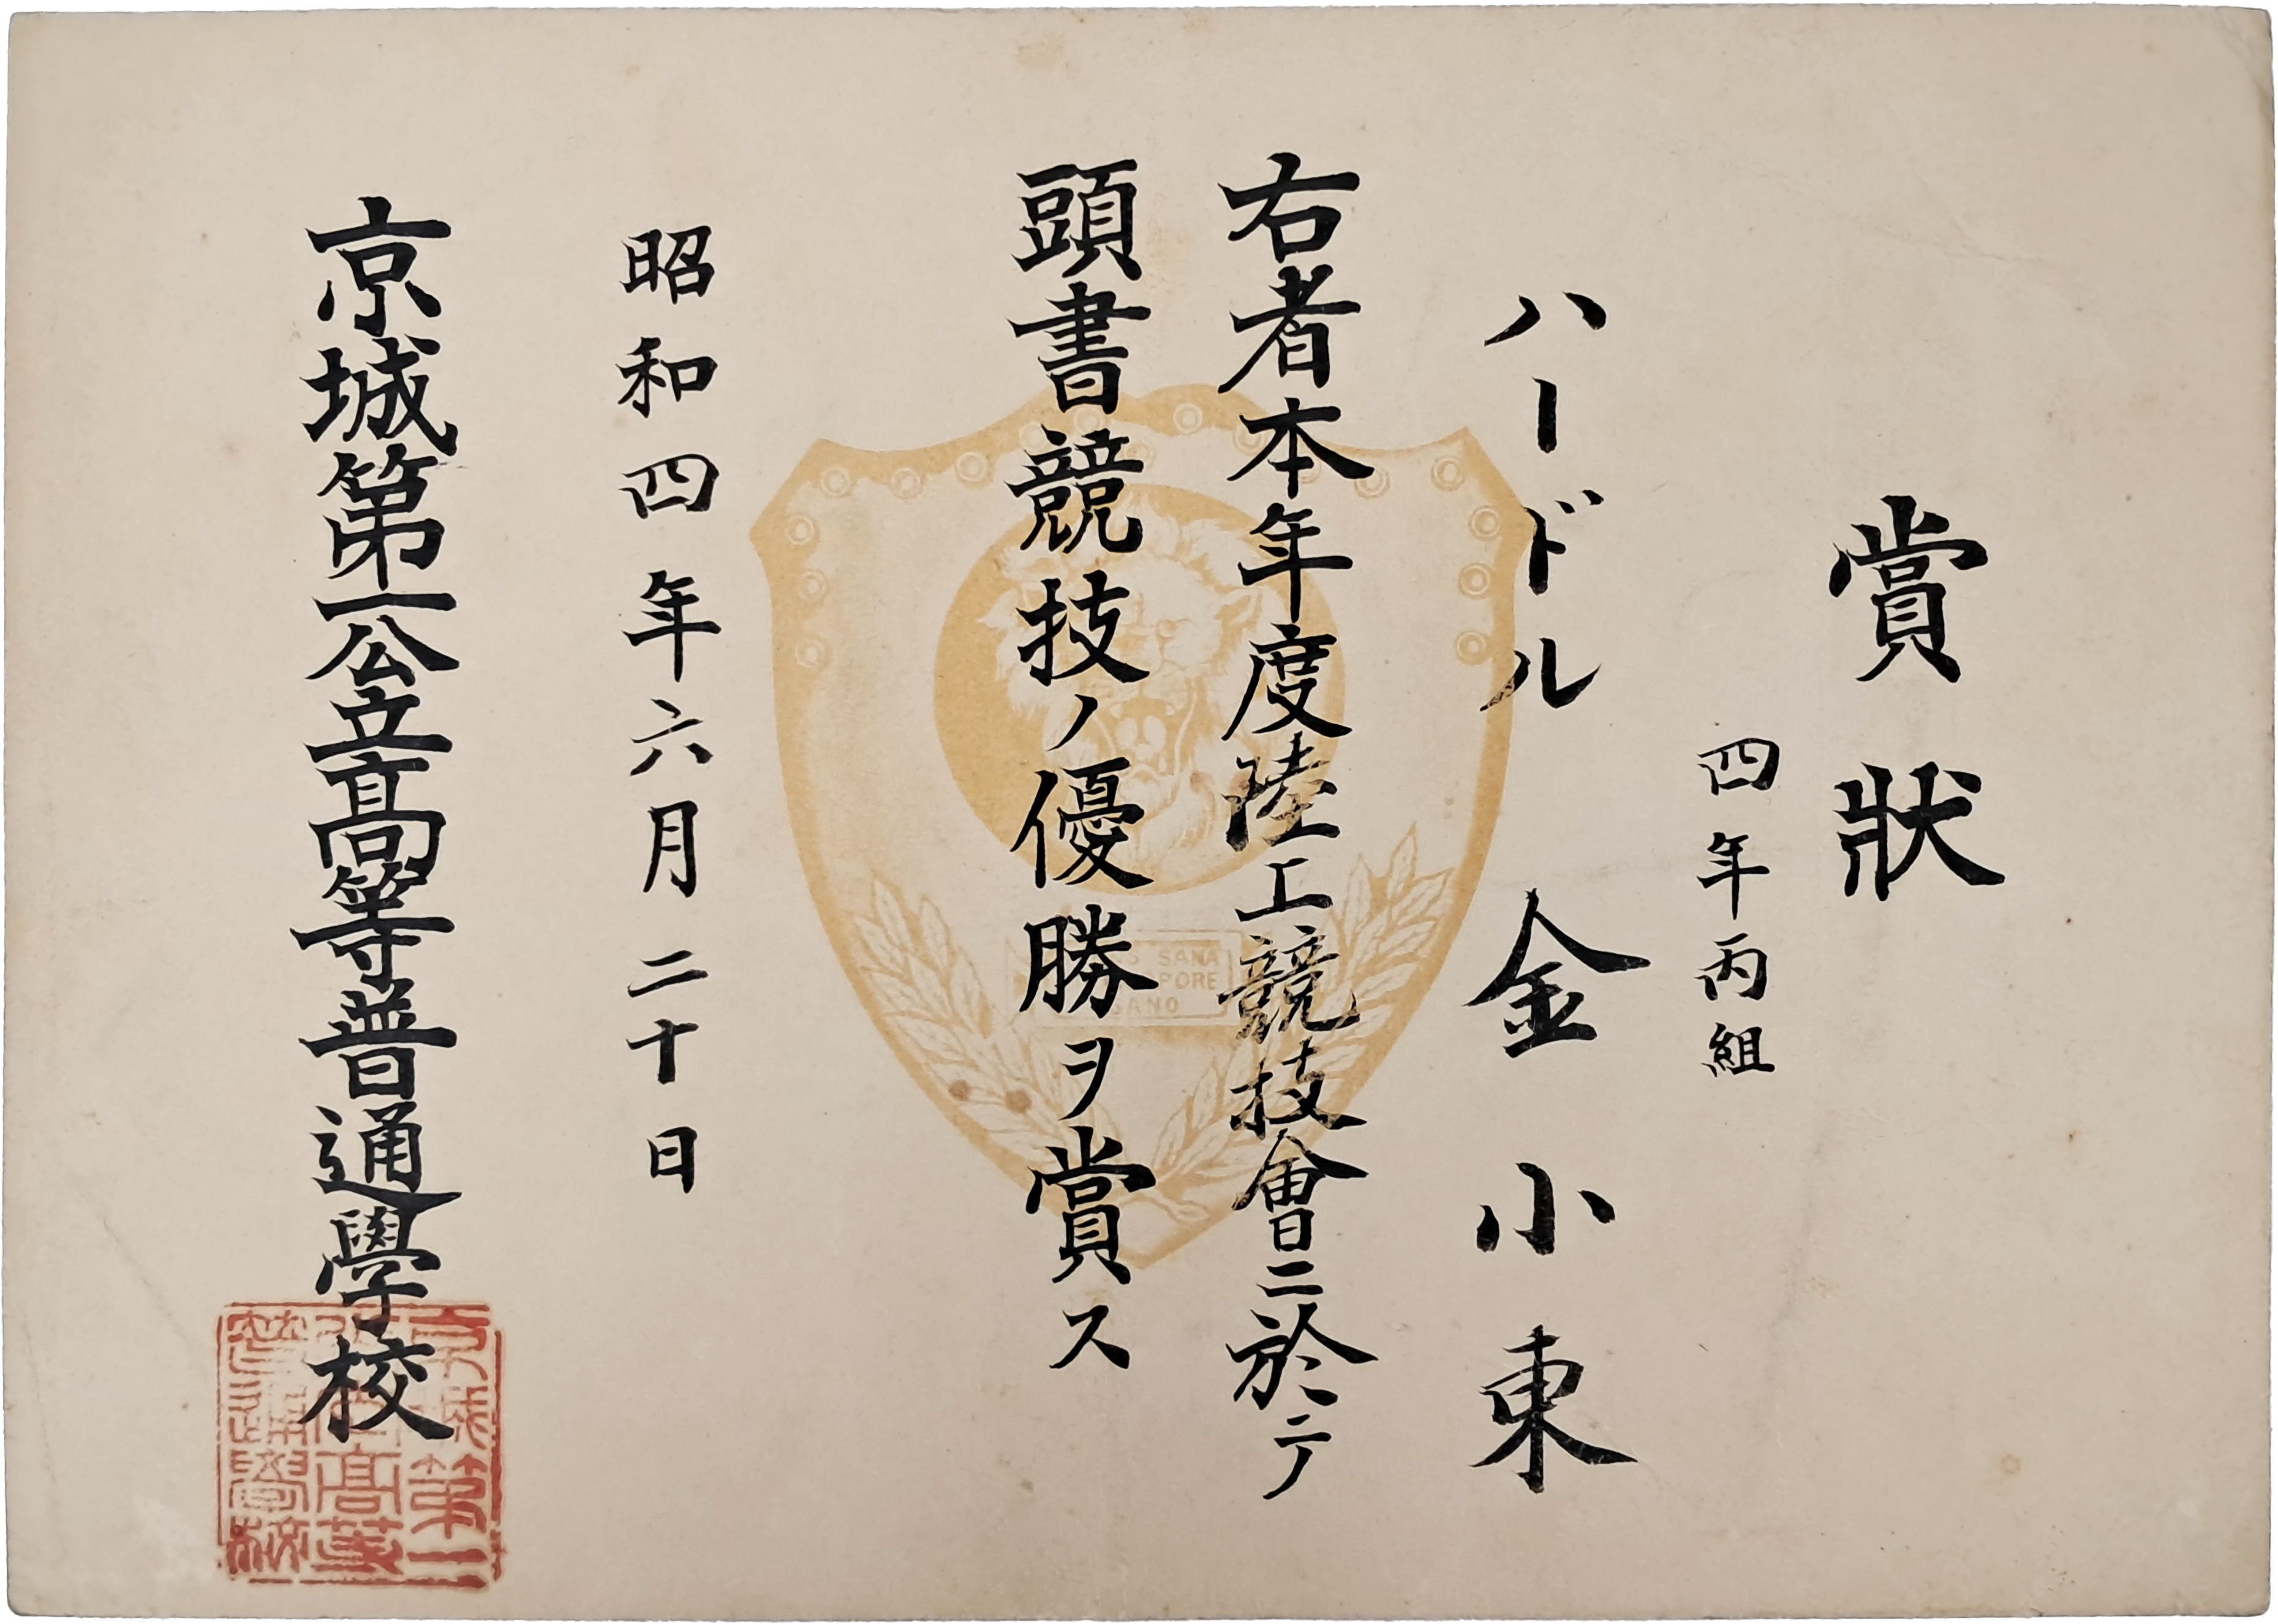 賞狀
四年丙組
ハードル 金小東
右者本年度陸上競技會ニ於テ
頭書競技ノ優勝ヲ賞ス
昭和四年六月二十日
京城第一公立高等普通學校
SANA
PORE
SANO
京城第一
公立高等
普通學校